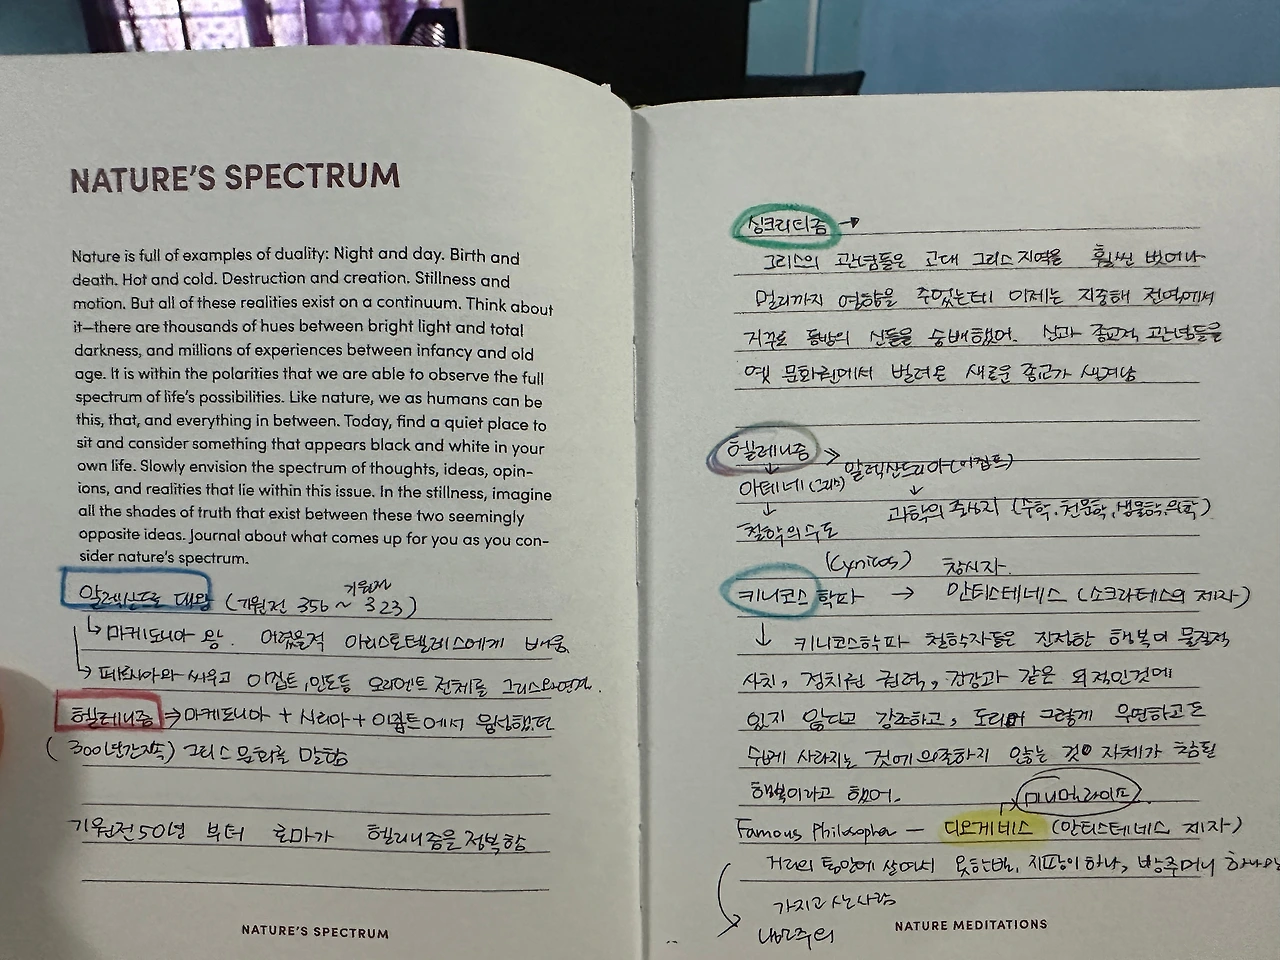 NATURE'S SPECTRUM
Nature is full of examples of duality: Night and day. Birth and
death. Hot and cold. Destruction and creation. Stillness and
motion. But all of these realities exist on a continuum. Think about
it—there are thousands of hues between bright light and total
darkness, and millions of experiences between infancy and old
age. It is within the polarities that we are able to observe the full
spectrum of life's possibilities. Like nature, we as humans can be
this, that, and everything in between. Today, find a quiet place to
sit and consider something that appears black and white in your
own life. Slowly envision the spectrum of thoughts, ideas, opin-
ions, and realities that lie within this issue. In the stillness, imagine
all the shades of truth that exist between these two seemingly
opposite ideas. Journal about what comes up for you as you con-
sider nature's spectrum.
기원전
알렉산드로 대왕 (기원전 356 ~ 323)
↳ 마케도니아 왕. 어렸을적 아리스토텔레스에게 배움
↳ 페르시아와 싸우고 이집트, 인도등 오리엔트 전체를 그리스와 연결.
헬레니즘 → 마케도니아 + 시리아 + 이집트에서 융성했던
(300년간지속) 그리스 문화를 말함
기원전 50년 부터 로마가 헬리니즘을 정복함
NATURE'S SPECTRUM
싱크리티즘 →
그리스의 관념들은 고대 그리스 지역을 훨씬 벗어나
멀리까지 영향을 주었는데 이제는 지중해 전역에서
거꾸로 동방의 신들을 숭배했어. 신과 종교적 관념들을
옛 문화권에서 빌려온 새로운 종교가 생겨남
헬레니즘 → 알렉산드리아(이집트)
↓
아테네 (그리스) ↓
↓ 과학의 중심지 (수학, 천문학, 생물학, 의학)
철학의 수도
(Cynicos) 창시자.
키니코스 학파 → 안티스테네스 (소크라테스의 제자)
↓ 키니코스학파 철학자들은 진정한 행복이 물질적
사치, 정치권 권력, 건강과 같은 외적인것에
있지 않다고 강조하고, 도리어 그렇게 우연하고도
쉽게 사라지는 것에 의존하지 않는 것 자체가 참된
행복이라고 했어. 미니멀라이프
Famous Philosopher — 디오게네스 (안티스테네스 제자)
거리의 통안에 살면서 옷한벌, 지팡이 하나, 빵주머니
가지고 사는사람
NATURE MEDITATIONS